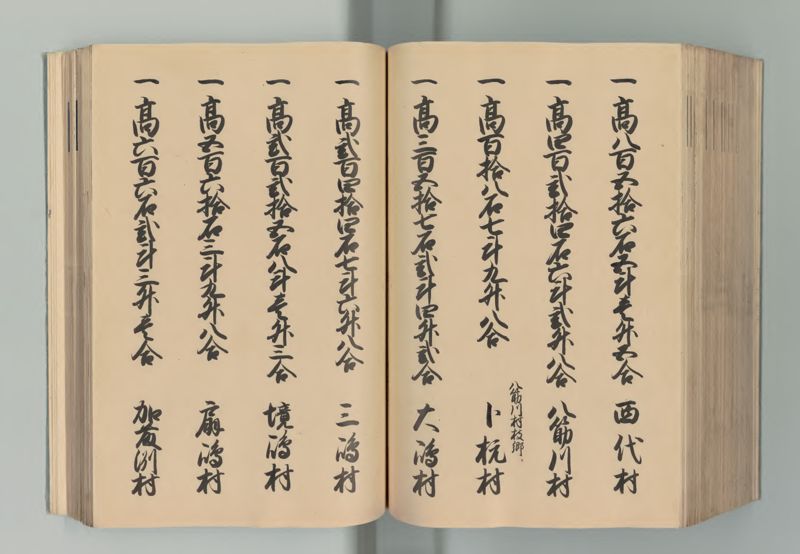 一 高八百五拾六石五斗壱升五合 西代村
一 高四百弐拾四石六斗弐升八合 八筋川村
八筋川村枝郷
一 高百拾八石七斗九升八合 卜杭村
一 高三百五拾七石弐斗四升弐合 大嶋村
一 高弐百四拾四石七斗六升八合 三嶋村
一 高弐百弐拾五石八斗壱升三合 境嶋村
一 高五百六拾石三斗九升八合 扇嶋村
一 高六百六石弐斗三升壱合 加藤洲村